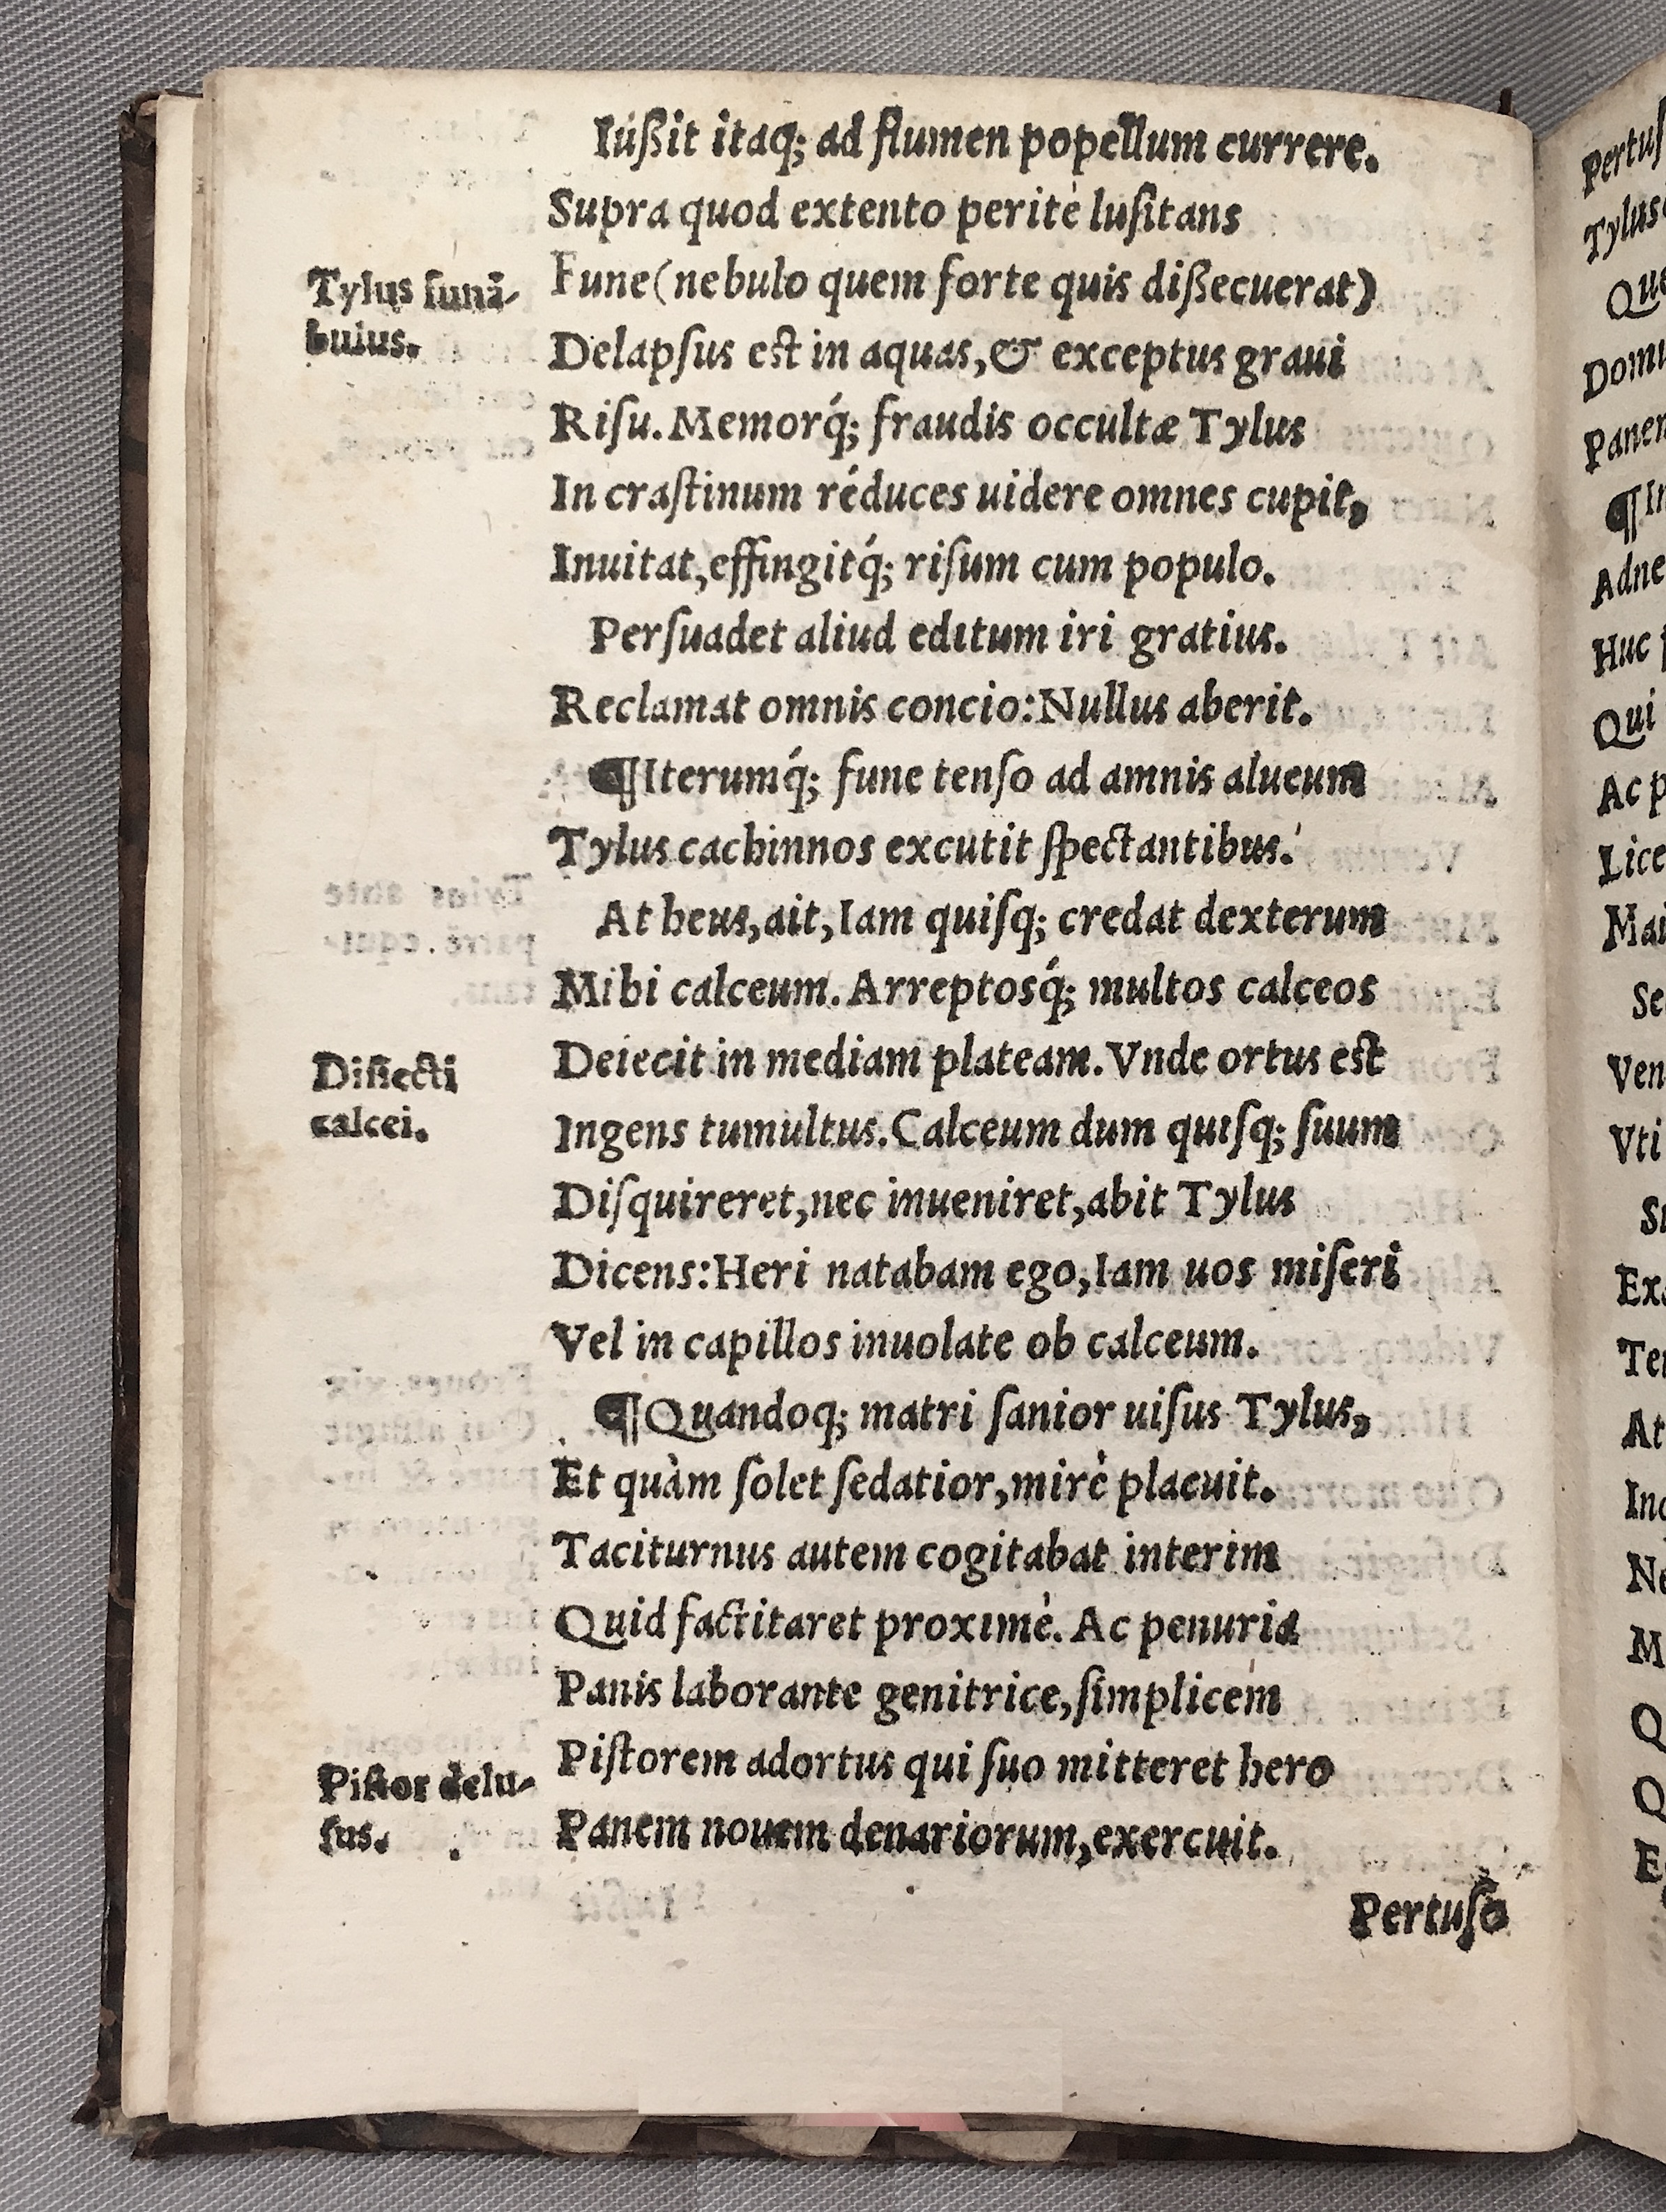 Iúßit itaq; ad flumen popellum currere.
Supra quod extento peritè luſitans
Tylus funā-
bulus.
Fune (nebulo quem forte quis dißecuerat)
Delapſus est in aquas, & exceptus graui
Riſu. Memorq́; fraudis occultæ Tylus
In craſtinum réduces uidere omnes cupit,
Inuitat, effingitq́; riſum cum populo.
Perſuadet aliud editum iri gratius.
Reclamat omnis concio: Nullus aberit.
¶Iterumq́; fune tenſo ad amnis alueum
Tylus cachinnos excutit ſpectantibus.
At heus, ait, Iam quiſq; credat dexterum
Mihi calceum. Arreptosq́; multos calceos
Dißecti
calcei.
Deiecit in mediam plateam. Vnde ortus est
Ingens tumultus. Calceum dum quiſq; ſuum
Diſquireret, nec inueniret, abit Tylus
Dicens: Heri natabam ego, Iam uos miſeri
Vel in capillos inuolate ob calceum.
¶Quandoq; matri ſanior uiſus Tylus,
Et quàm ſolet ſedatior, mirè placuit.
Taciturnus autem cogitabat interim
Quid factitaret proximè. Ac penuria
Panis laborante genitrice, ſimplicem
Piſtor delu-
ſus.
Piſtorem adortus qui ſuo mitteret hero
Panem nouem denariorum, exercuit.
Pertuſo
Pertuſ
Tylus
Que
Domu
Panem
¶In
Adne
Huc
Qui
Ac p
Lice
Mai
Se
Ven
Vti
Ex
Ter
At
Ne
M
Q
Q
E